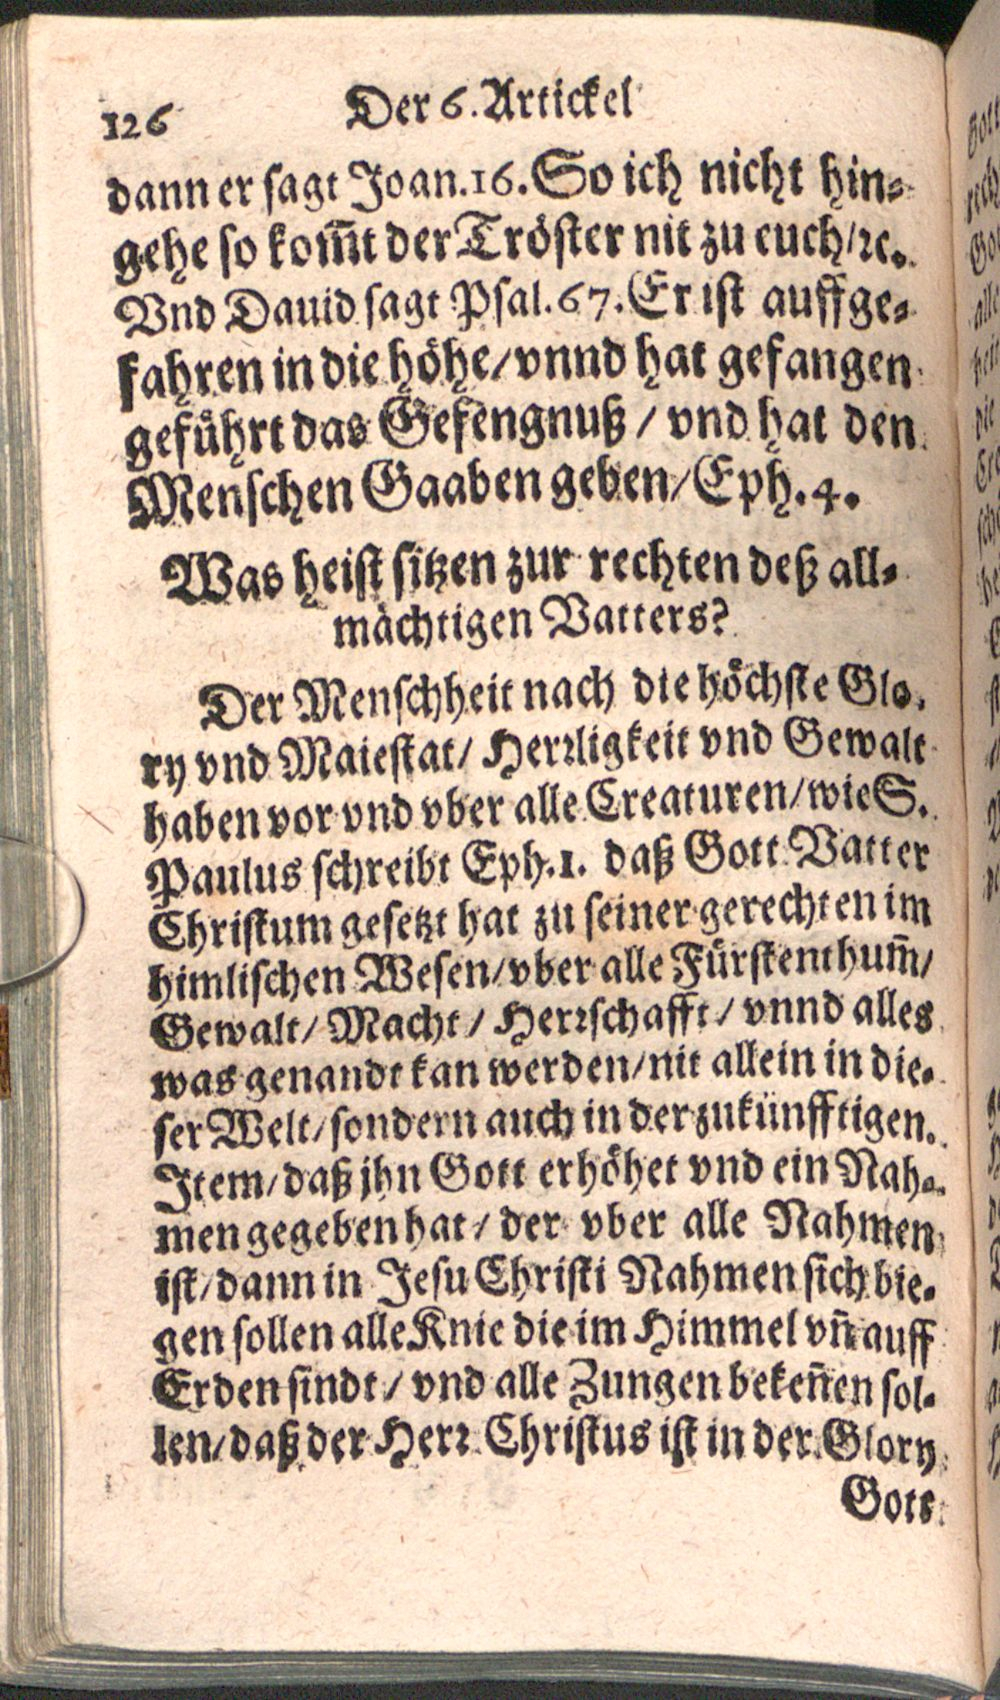 126 Der 6. Artickel
dann er sagt Joan.16. So ich nicht hin-
gehe so kom̃t der Tröster nit zu euch/ꝛc.
Vnd Dauid sagt Psal.67. Er ist auffge-
fahren in die höhe/vnnd hat gefangen
geführt das Gefengnuß / vnd hat den
Menschen Gaaben geben/Eph.4.
Was heist sitzen zur rechten deß all-
mächtigen Vatters?
Der Menschheit nach die höchste Glo-
ry vnd Maiestat/ Herꝛligkeit vnd Gewalt
haben vor vnd vber alle Creaturen/wie S.
Paulus schreibt Eph.1. daß Gott Vatter
Christum gesetzt hat zu seiner gerechten im
himlischen Wesen/vber alle Fürstenthum̃/
Gewalt/ Macht / Herꝛschafft / vnnd alles
was genandt kan werden/nit allein in die-
ser Welt/sondern auch in der zukünfftigen.
Item/daß jhn Gott erhöhet vnd ein Nah-
men gegeben hat/ der vber alle Nahmen
ist/dann in Jesu Christi Nahmen sich bie-
gen sollen alle Knie die im Himmel vñ auff
Erden sindt/ vnd alle Zungen bekeñen sol-
len/daß der Herꝛ Christus ist in der Glory
Gott